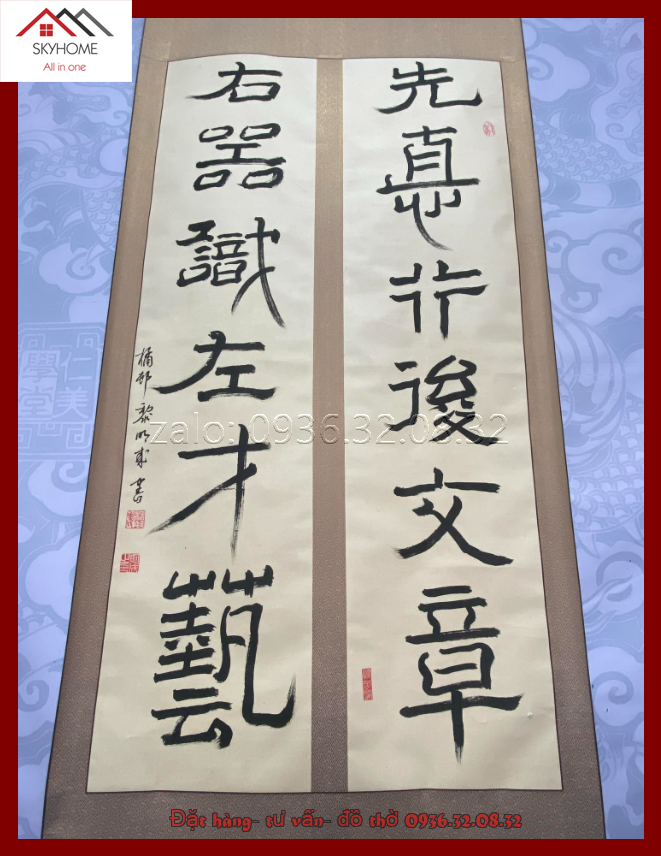 SKYHOME
All in one
先悳行後文章
右器識左才藝
橘邨黎明書
仁美
學堂
zalo: 0936.32.08.32
Đặt hàng- tư vấn- đồ thờ 0936.32.08.32